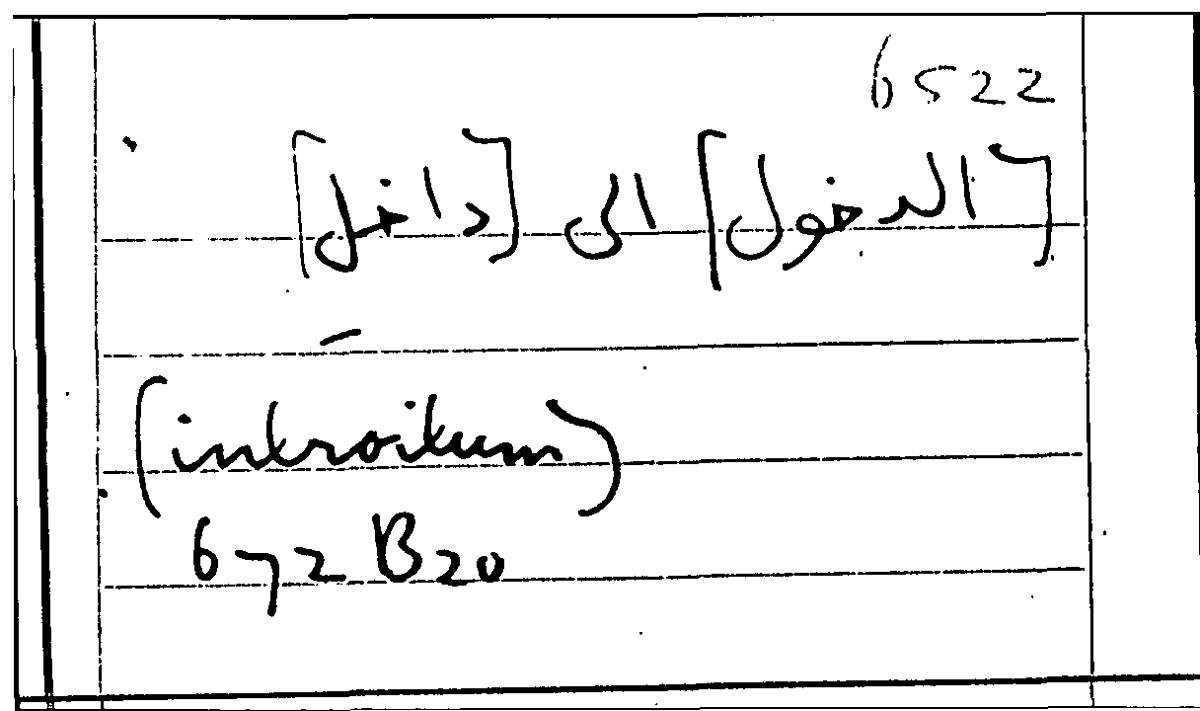 6522
[الدخول] الى [داخل]
(introitum)
672 B20